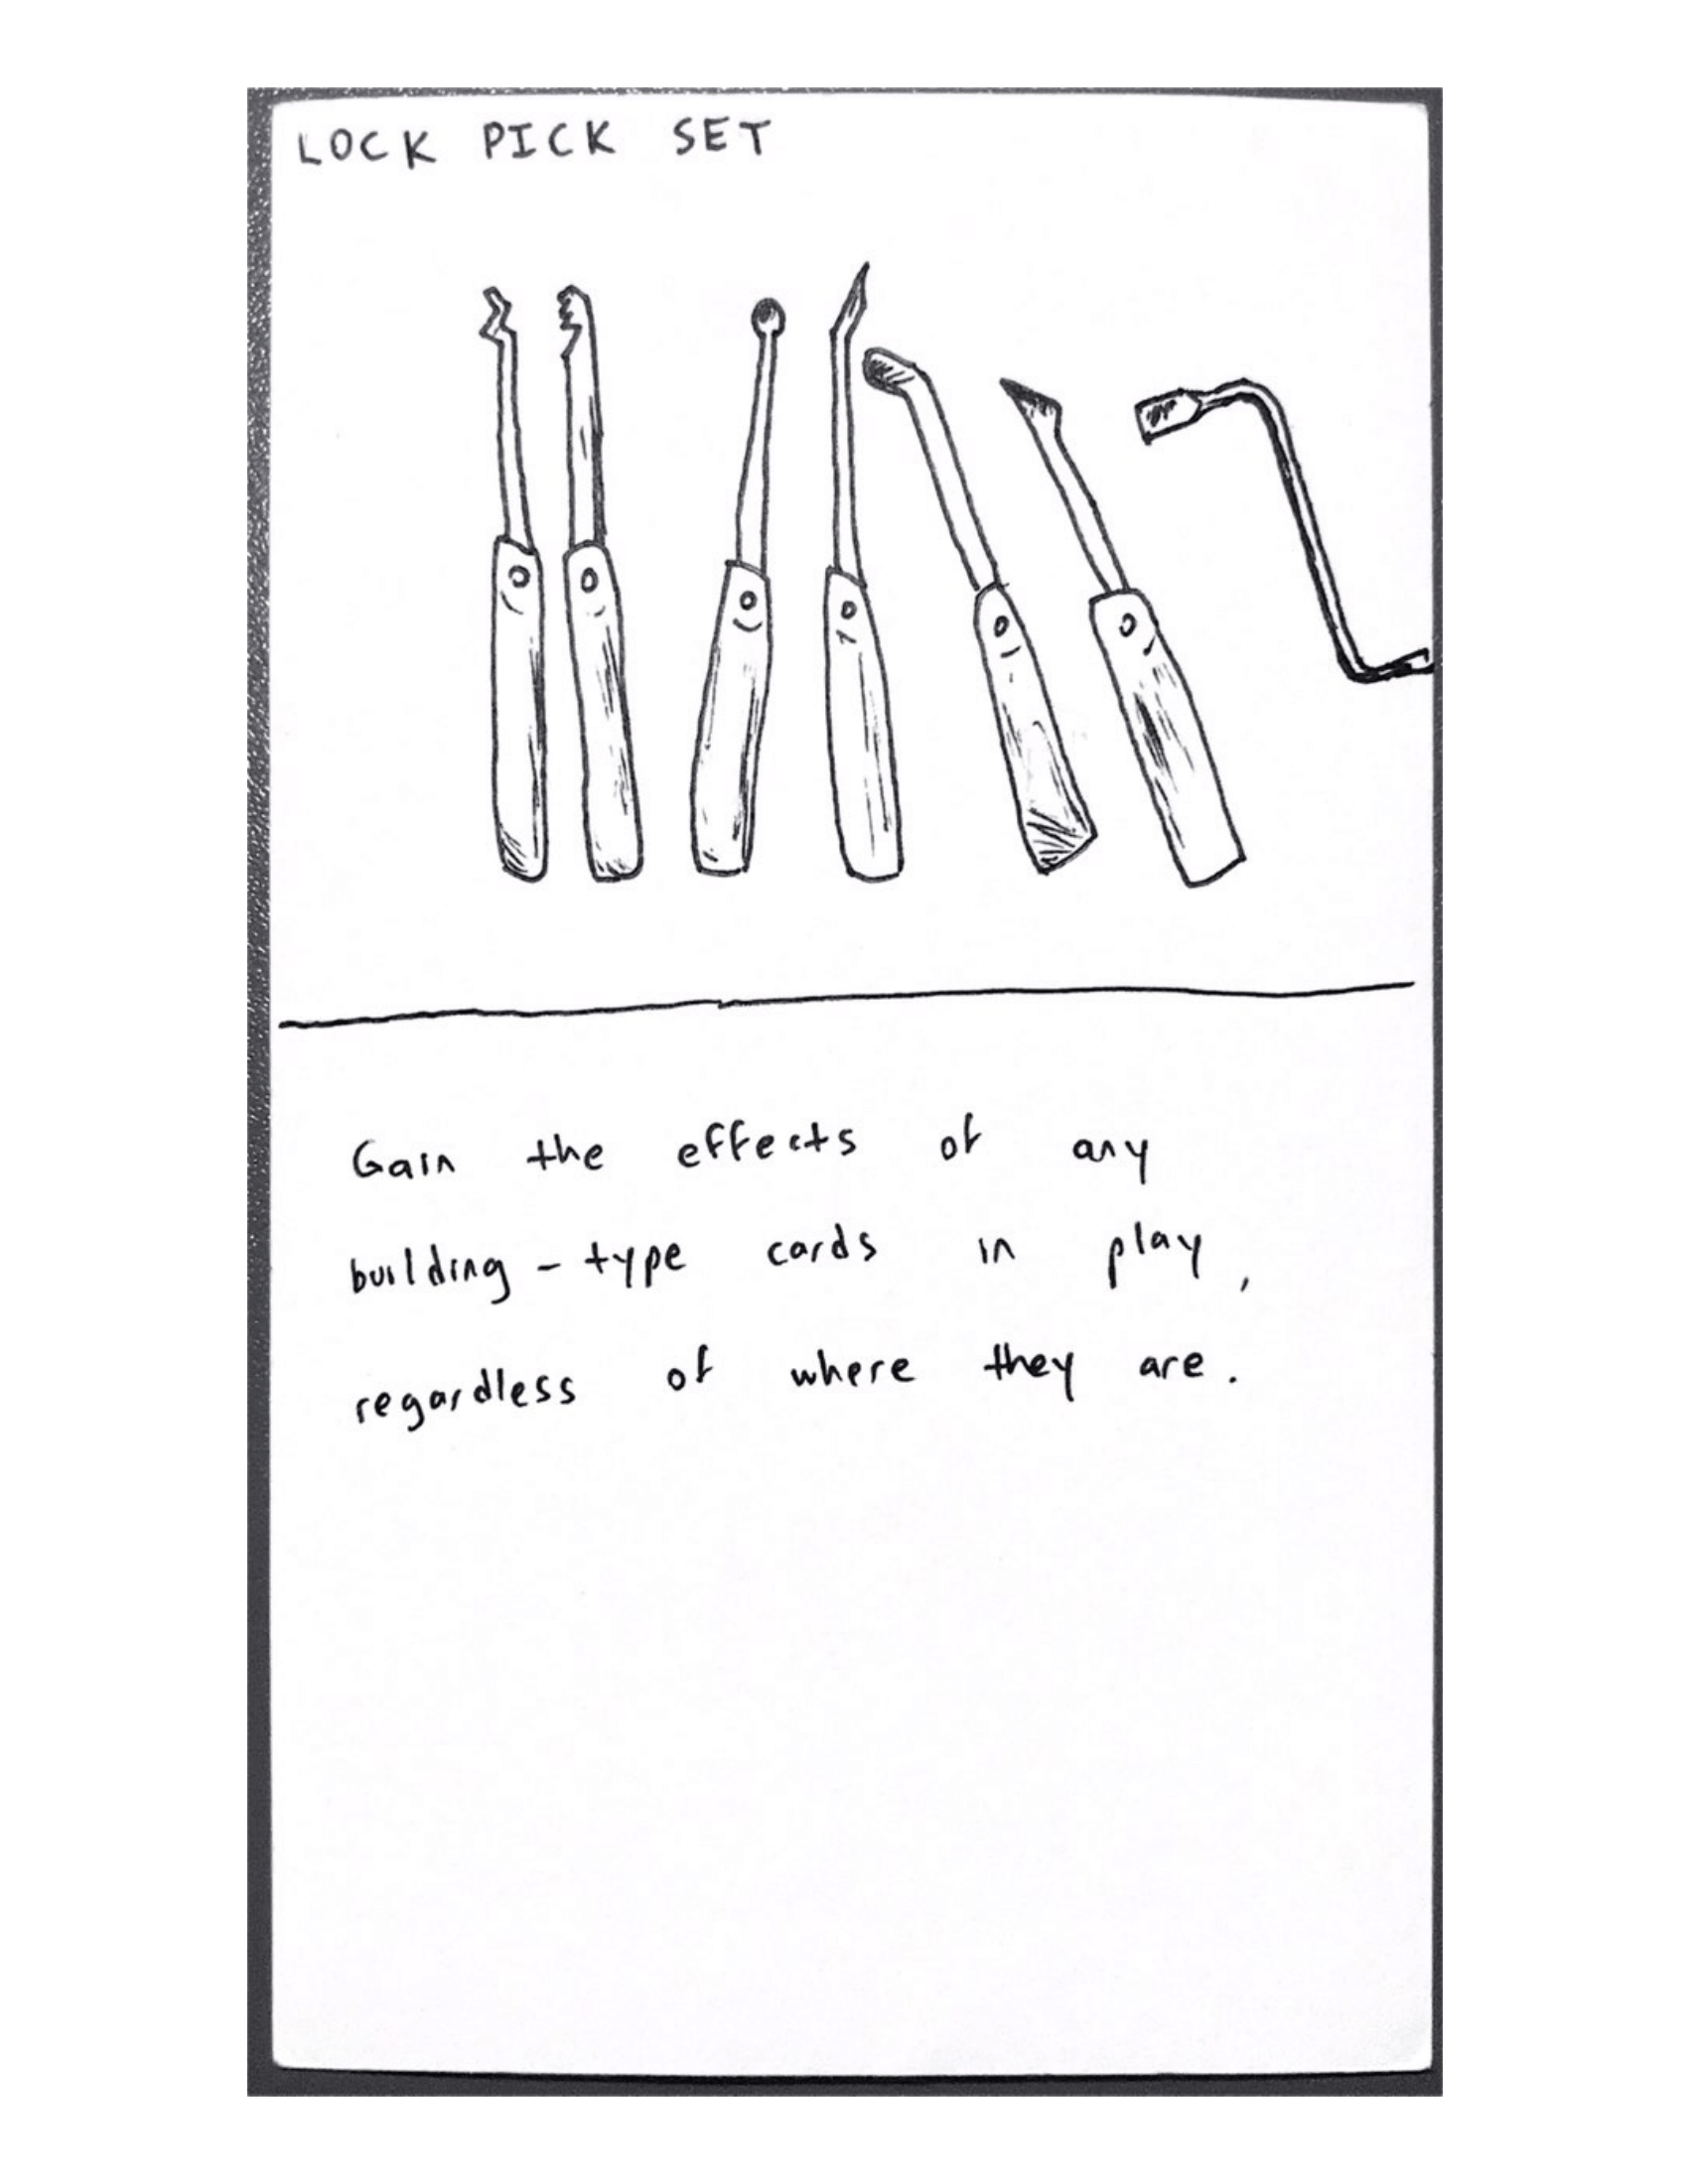 LOCK PICK SET
Gain the effects of any
building-type cards in play,
regardless of where they are.